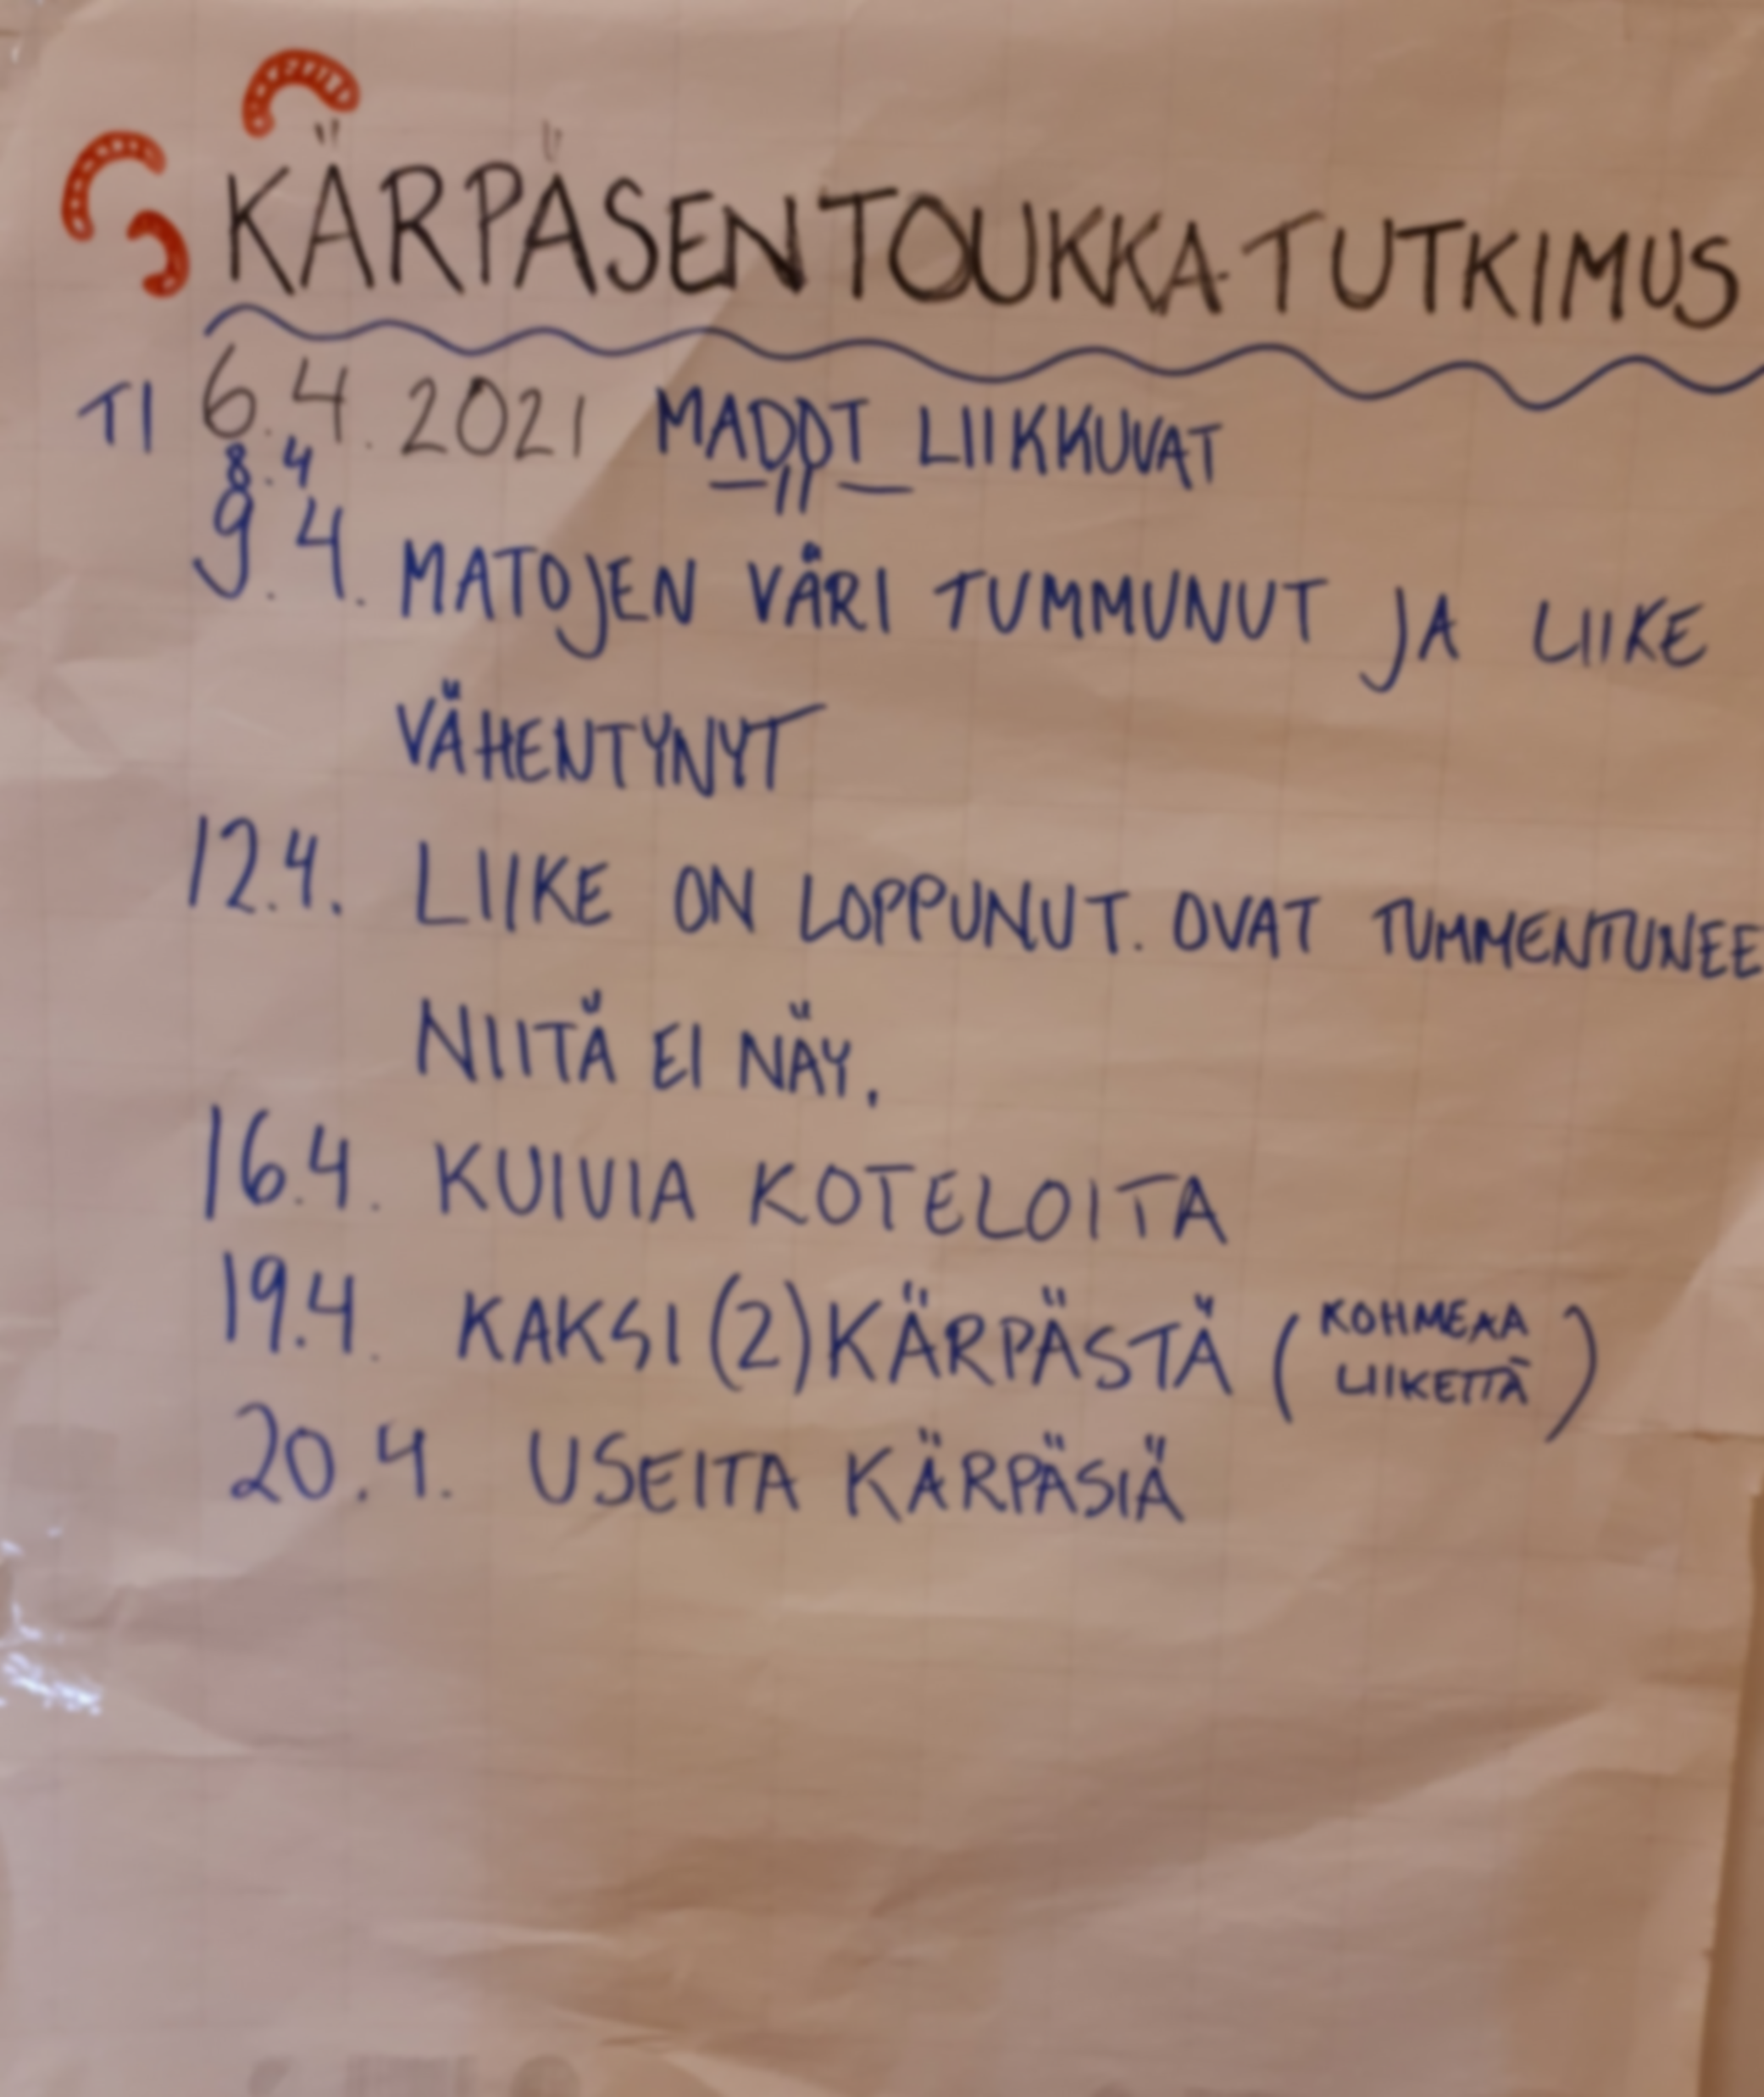 KÄRPÄSENTOUKKA-TUTKIMUS
TI 6.4.2021 MADOT LIIKKUVAT
8.4 —||—
9.4. MATOJEN VÄRI TUMMUNUT JA LIIKE
VÄHENTYNYT
12.4. LIIKE ON LOPPUNUT. OVAT TUMMENTUNEE
NIITÄ EI NÄY.
16.4. KUIVIA KOTELOITA
19.4. KAKSI (2) KÄRPÄSTÄ (KOHMEAA
LIIKETTÄ)
20.4. USEITA KÄRPÄSIÄ